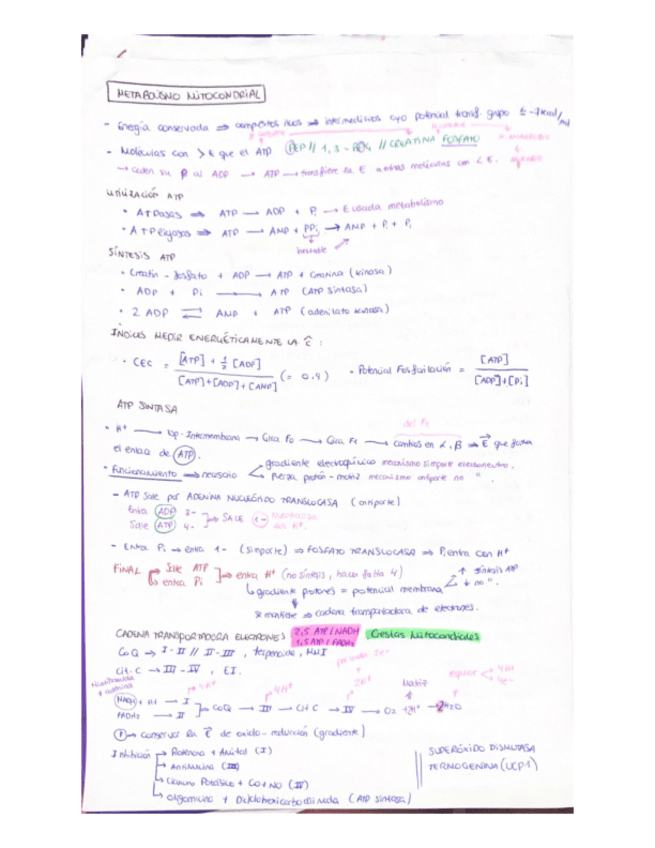 METABOLISMO MITOCONDRIAL
- Energía conservada ⇒ compuestos ricos ⇒ intermediarios cuyo potencial transf. grupo
- Moléculas con > E que el ATP PEP // 1,3 - // CREATINA FOSFATO
→ ceden su P al ADP → ATP → transfiere la E a otras moléculas con < E.
UTILIZACIÓN ATP
• ATPasas ⇒ ATP → ADP + Pi → E usada metabolismo
• ATP ligasas ⇒ ATP → AMP + PPi → AMP + Pi + Pi
inestable
SÍNTESIS ATP
• Creatin-fosfato + ADP → ATP + Creatina (kinasa)
• ADP + Pi → ATP (ATP sintasa)
• 2 ADP ⇌ AMP + ATP (adenilato kinasa)
ÍNDICES MEDIR ENERGÉTICAMENTE LA ĉ :
• CEC = [ATP] + 1/2 [ADP] / [ATP]+[ADP]+[AMP] (= 0.9) • Potencial Fosforilación = [ATP] / [ADP]+[Pi]
ATP SINTASA
del F1
• H+ → Esp. Intermembrana → Gira F0 → Gira F1 → cambios en α, β ⇒ E que forma
el enlace de ATP.
gradiente electroquímico mecanismo simporte electroneutro.
• Funcionamiento ⇒ necesario
fuerza protón-motriz mecanismo antiporte no " .
- ATP sale por ADENINA NUCLEÓTIDO TRANSLOCASA (antiporte)
Entra ADP 3-
Sale ATP 4- ] → SALE 1- Neutraliza
del H+.
- Entra Pi → entra 1- (simporte) ⇒ FOSFATO TRANSLOCASA ⇒ Pi entra con H+
FINAL Sale ATP
entra Pi ] → entra H+ (no síntesis, hacen falta 4) ↑ síntesis ATP
↳ gradiente protones = potencial membrana ↓ no " .
se mantiene ⇒ cadena transportadora de electrones.
CADENA TRANSPORTADORA ELECTRONES 2,5 ATP/NADH Crestas Mitocondriales
1,5 ATP/FADH2
CoQ → I-II // II-III , terpenoide, MMI
Cit-C → III-IV , EI.
por cada 2e-
4H+ 4H+ 2H+ Matriz
NADH + H+ → I
FADH2 → II ] → CoQ → III → Cit C → IV → O2 + 2H+ → H2O
→ conservar la E de oxido-reducción (gradiente)
Inhibición → Rotenona + Amital (I)
→ Antimicina (III)
→ Cianuro Potásico + CO + NO (IV)
→ Oligomicina + Diciclohexilcarbodiimida (ATP sintasa)
SUPERÓXIDO DISMUTASA
TERMOGENINA (UCP1)